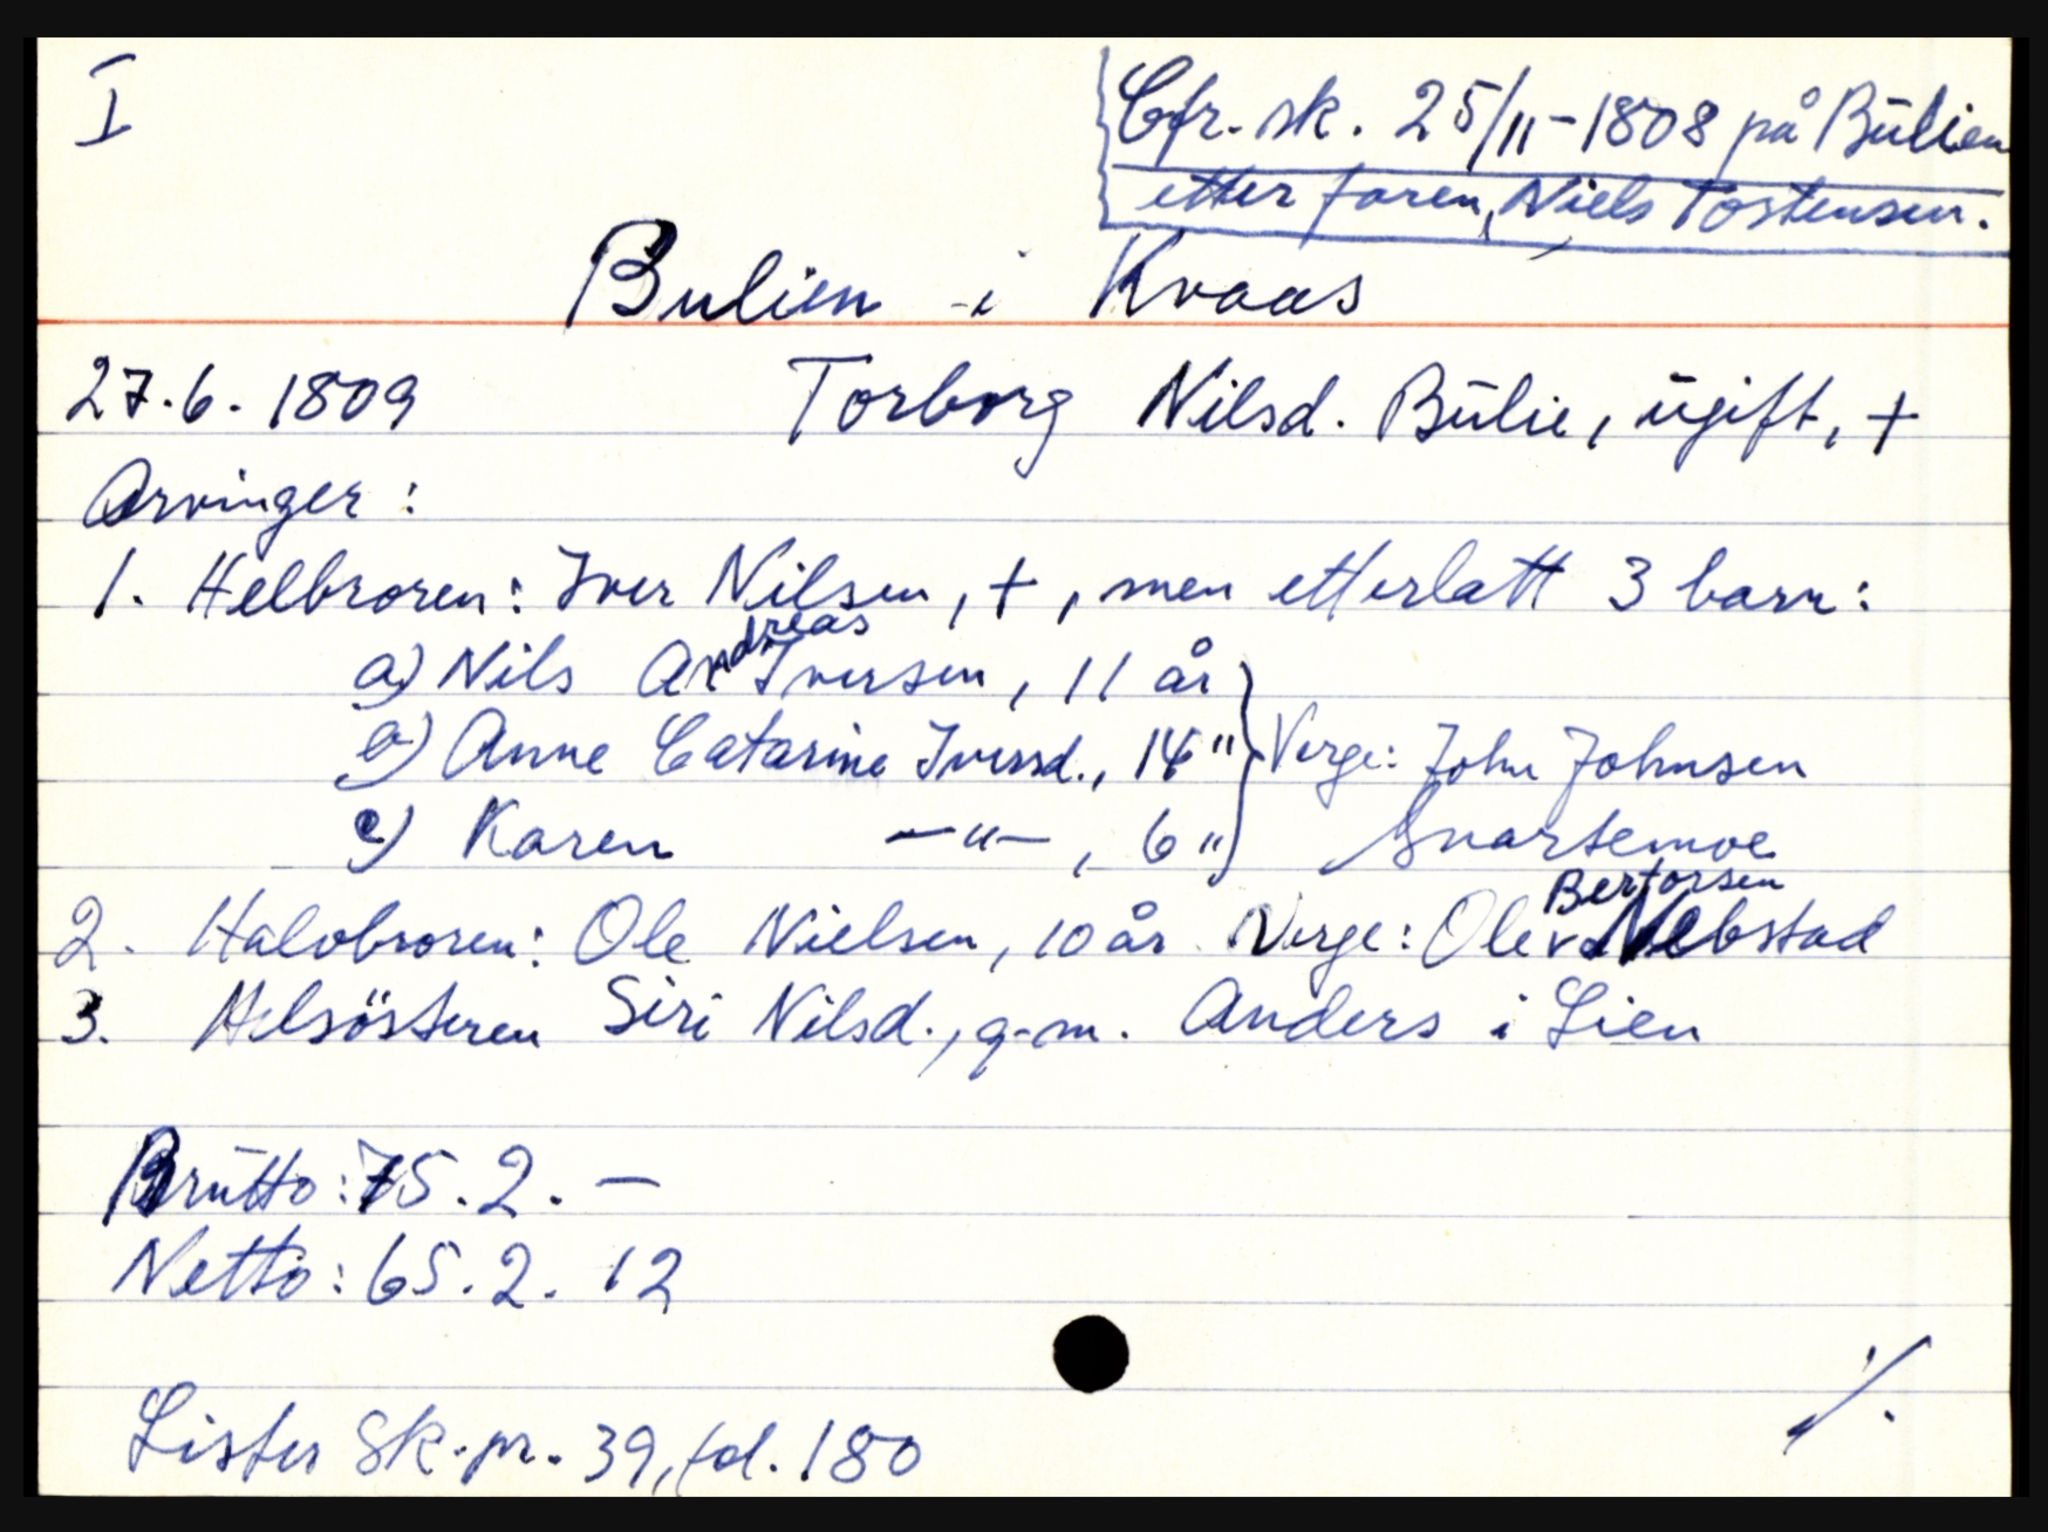 I
Cfr. sk. 25/11-1808 på Bülien
etter faren, Niels Tostensen.
Bulien i Kvaas
27.6.1809 Torborg Nilsd. Bülie, ügift, +
Arvinger:
1. Helbroren: Iver Nilsen, +, men etterlatt 3 barn:
a) Nils Andreas Iversen, 11 år
b) Anne Catarine Iversd., 14 " Verge: John Johnsen
c) Karen —"—, 6 " Snartemoe
2. Halvbroren: Ole Nielsen, 10 år. Verge: Ole Bertorsen Nebstad
3. Helsösteren Siri Nilsd., g.m. Anders i Lien
Brütto: 75.2. —
Netto: 65.2. 12
Lister Sk.pr. 39, fol. 180
./.